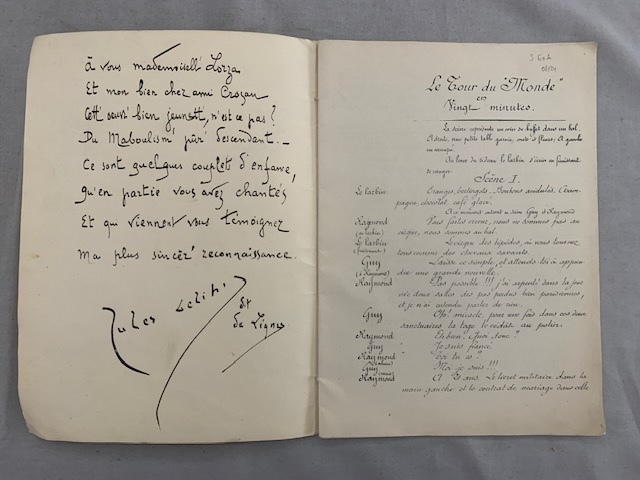 À vous mademoisell' Lorza
Et mon bien cher ami Crozan
Cett' œuvr' bien jeunett', n'est ce pas?
Du Maboulism' pûr' descendant._
Ce sont quelques couplet d'enfant,
Qu'en partie vous avez chantés
Et qui viennent vous témoignez
Ma plus sincèr' reconnaissance.
Jules
et
de Vignes
Le Tour du "Monde"
en
Vingt minutes.
La scène représente un coin de buffet dans un bal.
A droite, une petite table garnie, fleurs; A gauche
un canapé.
Au lever du rideau le larbin
de ranger.
Scène I.
Le larbin. Oranges, berlingots. Bonbons acidulés, Cham-
pagne, chocolat, café glacé.
A ce moment entrent en scène Guy et Raymond
Raymond Vous faites erreur, nous ne sommes pas au
(au larbin) cirque, nous sommes au bal.
Le larbin Le cirque des bipèdes, où vous tournez
tous comme des chevaux savants.
Guy Laisse ce simple, et attends toi à appren-
(à Raymond) dre une grande nouvelle.
Raymond Pas possible!!! j'ai arpenté dans la jour
née deux salles des pas perdus bien parisiennes,
et je n'ai entendu parler de rien.
Guy Oh! miracle, pour une fois dans ces deux
sanctuaires la toge le cédait au
Raymond Eh bien! Quoi donc?
Guy Je suis fiancé.
Raymond Toi tu es?
Guy Moi je suis!!!
Raymond A 20 ans. Le livret militaire dans la
main gauche et le contrat de mariage dans celle